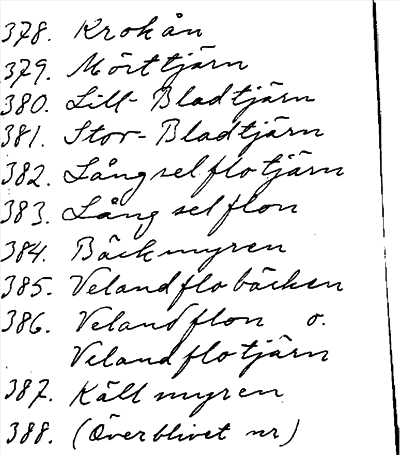 378. Krokån
379. Mörttjärn
380. Lill-Bladtjärn
381. Stor-Bladtjärn
382. Långselflotjärn
383. Långselflon
384. Bäckmyren
385. Velandflobäcken
386. Velandflon o.
Velandflotjärn
387. Källmyren
388. (Överblivet nr)